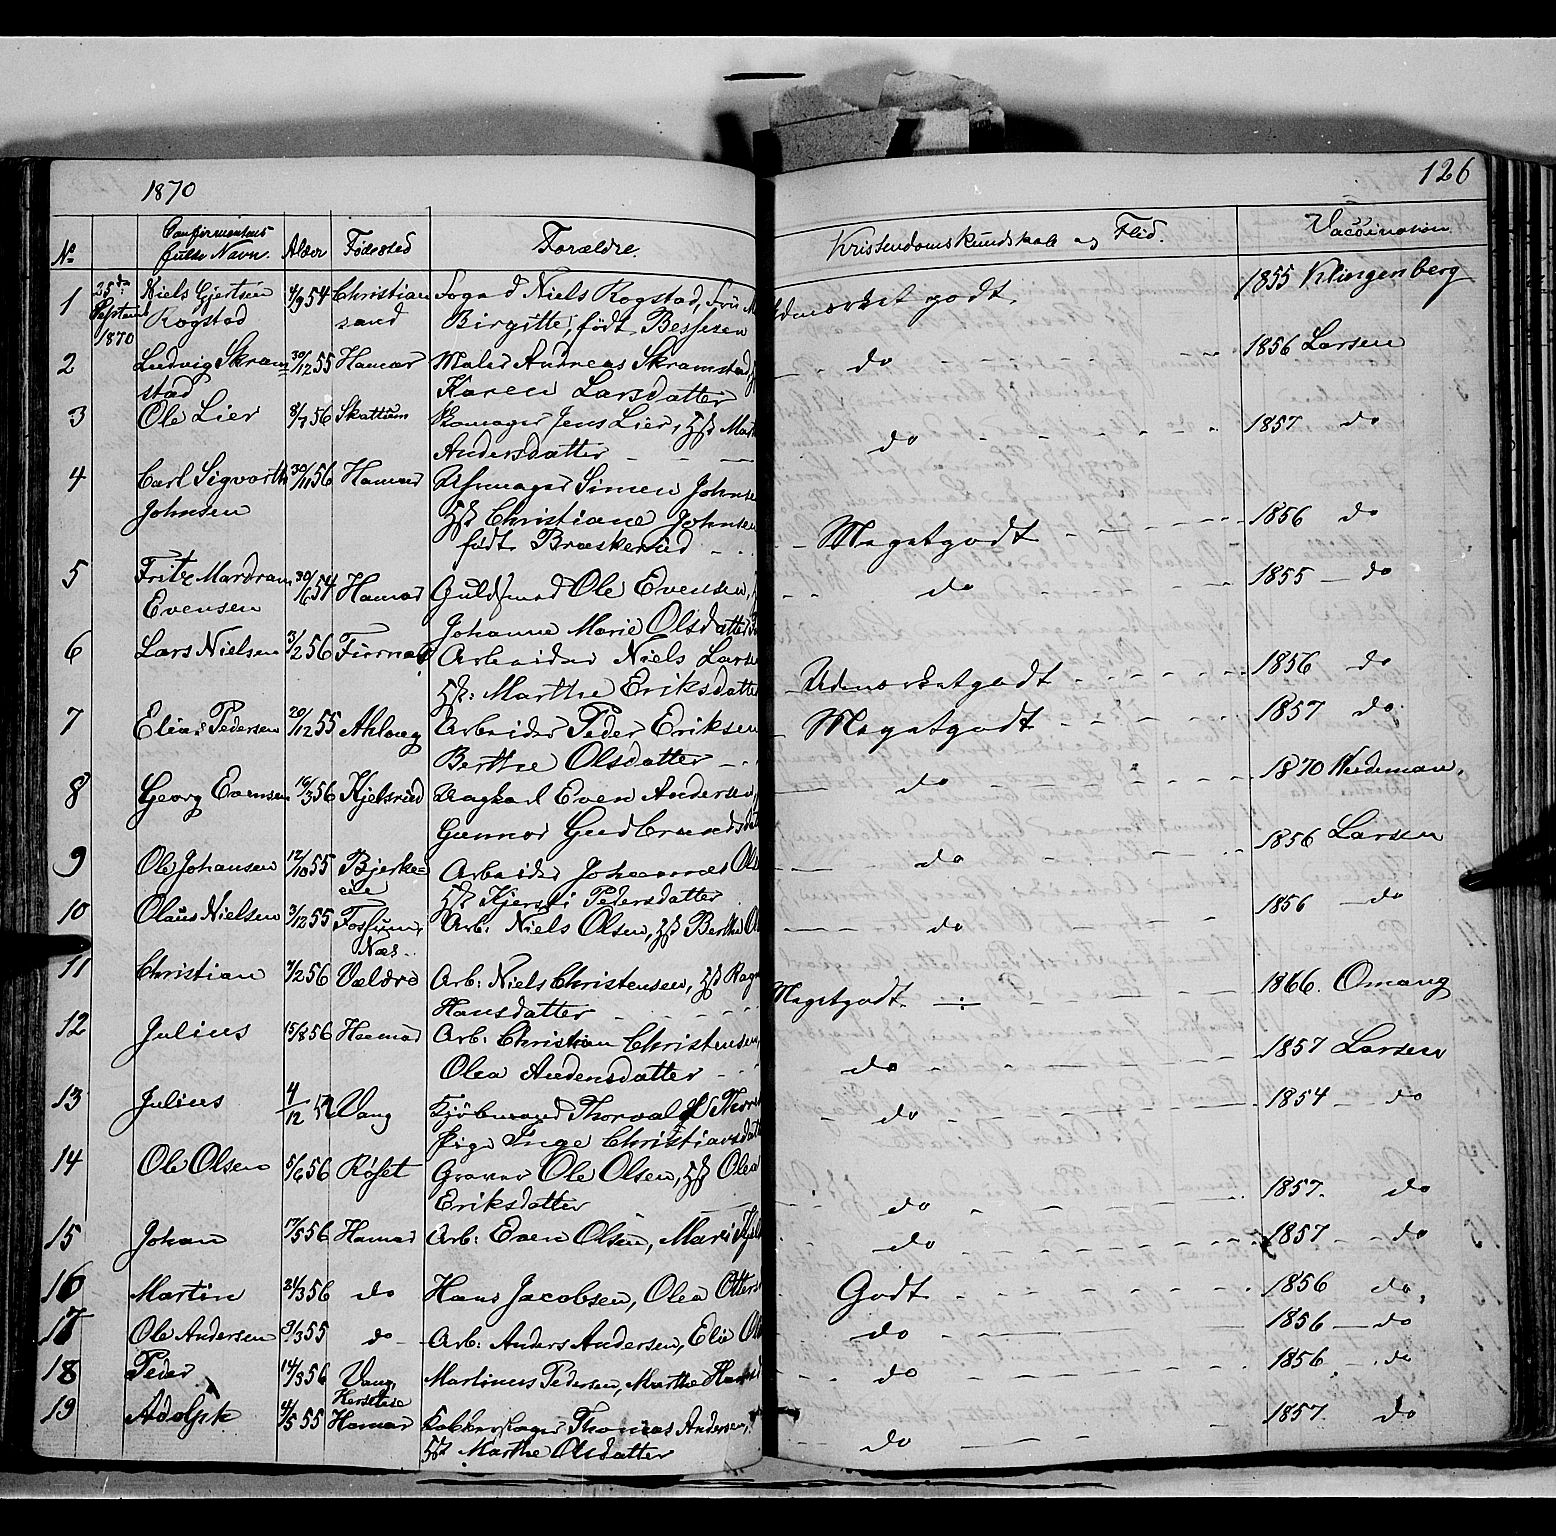 1870
126
Confirmantens
No fulde Navn. Alder Fødested Forældre. Kristendomskundskab og Flid. Vaccination.
1 25de Niels Gjertsen 4/9 54 Christian Foged Niels Rogstad, Fru Udmerket godt. 1855 Klingenberg
Septemb Rogstad sand Birgitte, født Bessesen
1870
2 Ludvig Skram 30/12 55 Hamar Maler Andreas Skramstad do 1856 Larsen
stad Karen Larsdatter
3 Ole Lier 8/7 56 Skattum Jens Lier, do 1857 do
Andersdatter
4 Carl Sigvorth 30/11 56 Hamar Simen Johnse Megetgodt 1856 do
Johnsen Christiane Johnsen
født Braskerud
5 Fritz Mardram 30/6 54 Hamar Guldsmed Ole Evensen, do 1855 do
Evensen Johanne Marie Olsdatter
6 Lars Nielsen 3/2 56 Furnæs Arbeider Niels Larse Udmerketgodt 1856 do
Marthe Eriksdatter
7 Elias Pedersen 20/12 55 Arbeider Peder Eriksen Megetgodt 1857 do
Berthe Olsdatter
8 Georg Evensen 16/3 56 Kjelsrud Even Andersen, do 1870 Weideman.
Gunnor Gudbrandsdat
9 Ole Johansen 12/10 55 Bjerke= Arbeider Johannes Ols do 1856 Larsen
eie Kjersti Pedersdatter
10 Olaus Nielsen 3/12 55 Fossum, Arb: Niels Olsen, Berthe Ol do 1856 do
Næs.
11 Christian 7/2 56 Vældre Arb: Niels Christensen, Ragn Megetgodt 1866. Omang
Hansdatter
12 Julius 15/8 56 Hamar Arb: Christian Christensen, do 1857 Larsen
Olea Andersdatter
13 Julius 4/12 Vang Kjøbmand Thorvald Thor do 1854 do
Pige Inge Christiansdatt
14 Ole Olsen 5/6 56 Røset Graver Ole Olsen, Olea do 1857. do
Eriksdatter
15 Johan 17/5 56 Hamar Arb: Even Olsen, Mari do 1857 do
16 Martin 21/3 56 do Hans Jacobsen, Olea Otters Godt 1856 do
17 Ole Andersen 9/3 55 do Arb: Anders Andersen, Elie Ol do 1856 do
18 Peder 14/3 56 Vang, Martinus Pedersen, Marthe Hansd do 1856 do
19 Adolph 4/5 55 Hamar Thomas Andersen, do 1857. do
Marthe Olsdatter